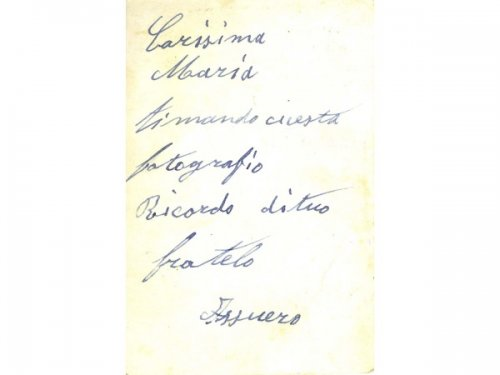 Carissima
Maria
timando cuesta
fotografio
Ricordo dituo
fratelo
Assuero